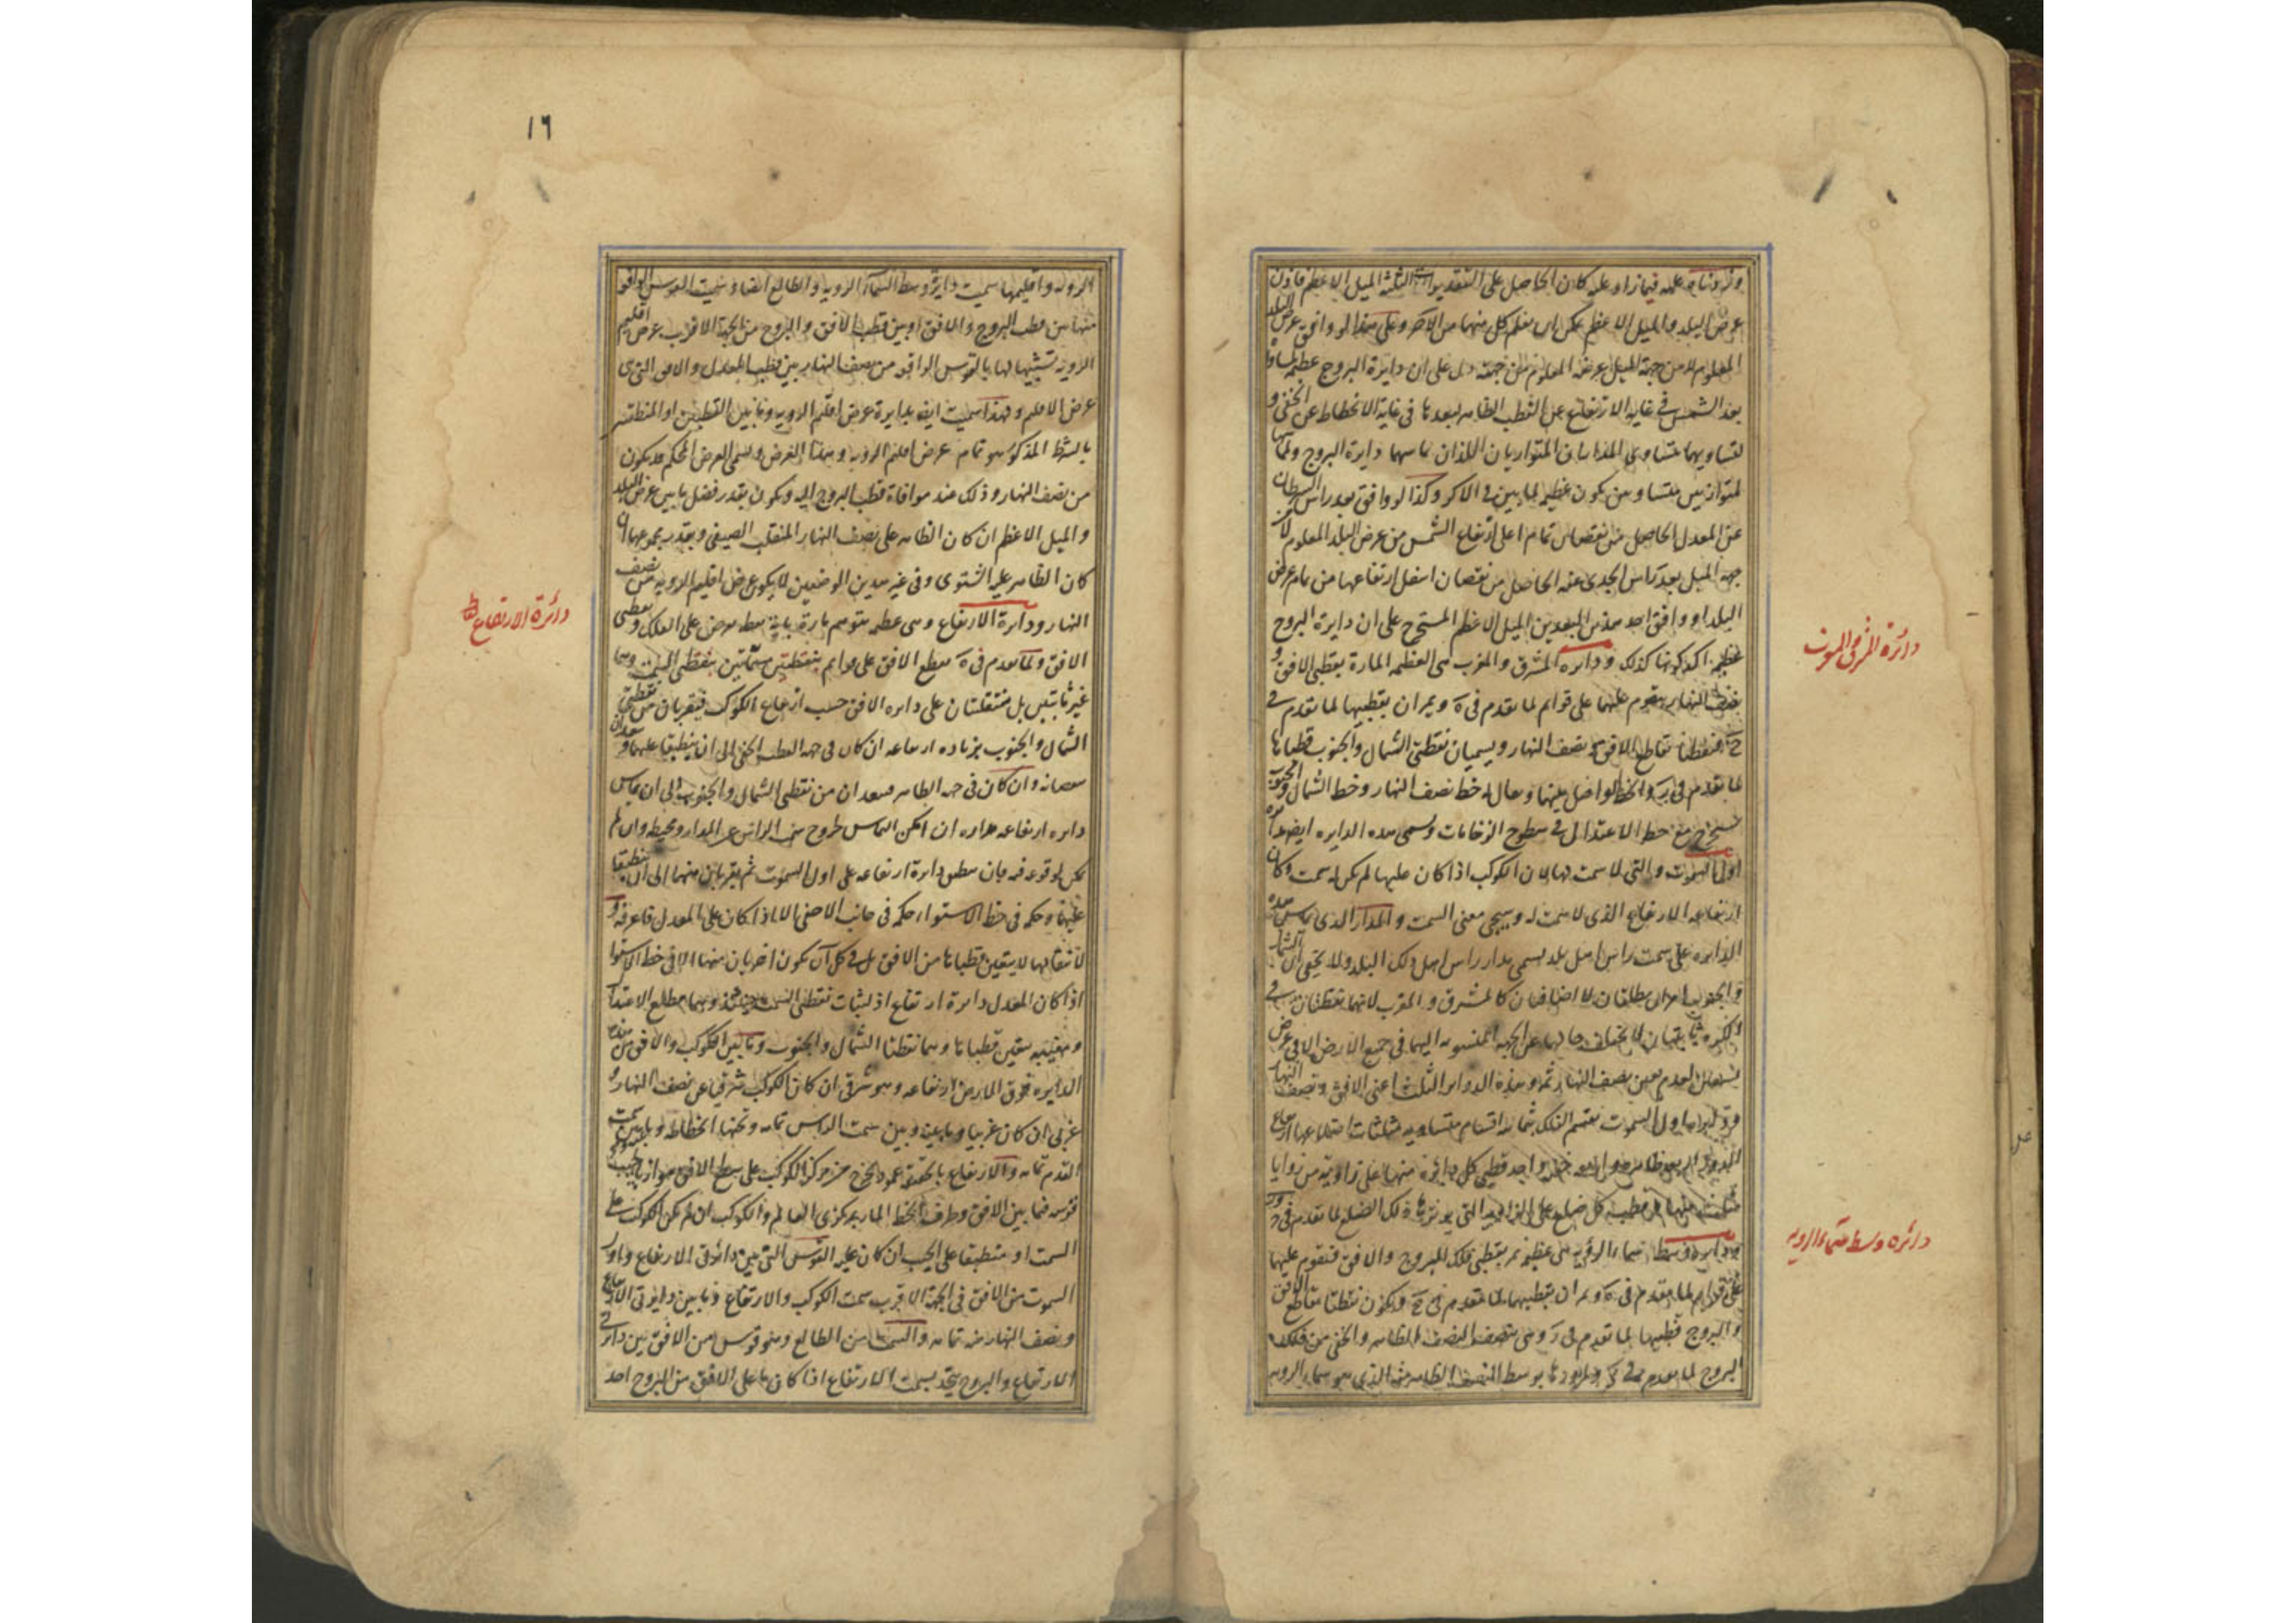 عليه فيما زاد عليه كان الحاصل على التقديرات الثلثة الميل الاعظم فاذن
عرض البلد والميل الاعظم يمكن ان يعلم كل منهما من الآخر وعلى هذا لو وافق عرض البلد
المعلوم لا من جهة الميل عرضه المعلوم من جهته دل على ان دايرة البروج عظيمة
بعد الشمس في غاية الارتفاع عن القطب الظاهر لبعدها في غاية الانحطاط عن الخفي و
لتساويهما يتساوى المداران المتوازيان اللذان تماسهما دايرة البروج
لمتوازيين متساويين يكون عظيمة لما بين في الاكر وكذا لو وافق بعد راس السرطان
عن المعدل الحاصل من نقصان تمام اعلى ارتفاع الشمس من عرض البلد المعلوم لا
جهة الميل بعد راس الجدي عنه الحاصل من نقصان اسفل ارتفاعها من تمام عرض
البلد او وافق احد هذين البعدين الميل الاعظم المستخرج على ان دايرة البروج
عظيمة كذلك ودايرة المشرق والمغرب هي العظيمة المارة بقطبي الافق و
نصف النهار يقوم عليهما على قوايم لما تقدم في ة ويمران بقطبيها لما تقدم في
فنقطتا تقاطع الافق ونصف النهار ويسميان نقطتي الشمال والجنوب قطباها
لما تقدم في والخط الواصل بينهما ويقال له خط نصف النهار وخط الشمال والجنوب
مع خط الاعتدال في سطوح الرخامات ويسمى هذه الدايرة ايضا
اول السموت والتي لا سمت لها لان الكوكب اذا كان عليها لم يكن له سمت وكان
ارتفاعه الارتفاع الذي لا سمت له وسيجي معنى السمت والمدار الذي يماس هذه
الدايرة على سمت راس اهل بلد يسمى مدار راس اهل ذلك البلد ولا يخفى ان الشمال
والجنوب امران مطلقان لا اضافيان كالمشرق والمغرب لانهما نقطتان في
الكرة ثابتتان لا يختلف حالهما عن الجهة المنسوبة اليهما في جميع الارض الا في عرض
تسعين لعدم تعين نصف النهار ثمه وهذه الدواير الثلث اعني الافق ونصف النهار
واول السموت يقسم الفلك ثمانية اقسام متساوية مثلثات اضلاعها ارباع
الدور واحد قطبي كل دايرة منها على زاوية من زوايا
مثلث منها قطب كل ضلع على الزاوية التي يوترها ذلك الضلع لما تقدم في
ودايرة وسط سماء الرؤية هي عظيمة تمر بقطبي فلك البروج والافق فتقوم عليها
على قوايم لما تقدم في ة ويمران بقطبيها لما تقدم في ويكون نقطتا تقاطع الافق
والبروج قطبيها لما تقدم في وهي تنصف النصف الظاهر والخفي من فلك
البروج لما تقدم في ولمرورها بوسط النصف الظاهر منه الذي هو سماء الرؤية
دائرة المشرق والمغرب
دائره وسط سماء الرويه
١٦
الروية واقليمها سميت دايرة وسط السماء الروية والطالع ايضا وسميت القوس الواقعة
منها بين قطب البروج والافق او بين قطب الافق والبروج من الجهة الاقرب عرض اقليم
الروية تشبيها لها بالقوس الواقعة من نصف النهار بين قطب المعدل والافق التي هي
عرض الاقليم ولهذا سميت ايضا بدايرة عرض اقليم الروية وما بين القطبين او المنطقتين
بالشرط المذكور هو تمام عرض اقليم الروية وهذا العرض ويسمى العرض المحكم قد يكون
من نصف النهار وذلك عند موافاة قطب البروج اليه ويكون بقدر فضل ما بين عرض البلد
والميل الاعظم ان كان الظاهر على نصف النهار المنقلب الصيفي وبقدر مجموعهما ان
كان الظاهر عليه الشتوى وفي غير هذين الوضعين لا يكون عرض اقليم الروية من نصف
النهار ودايرة الارتفاع وهي عظيمة تتوهم مارة باية نقطة تفرض على الفلك وبقطبي
الافق ولما تقدم في ة تقطع الافق على قوايم بنقطتين مسماتين بنقطتي السمت وهما
غير ثابتتين بل منتقلتان على دايرة الافق حسب ارتفاع الكوكب فيقربان من نقطتي
الشمال والجنوب بزيادة ارتفاعه ان كان في جهة القطب الخفي الى ان ينطبقا عليهما ويبعدان
بنقصانه وان كان في جهة الظاهر فيبعدان من نقطتي الشمال والجنوب الى ان يماس
دايرة ارتفاعه مداره ان امكن التماس لخروج سمت الراس عن المدار ومحيطه وان لم
يكن لوقوعه فيه فبان تنطبق دايرة ارتفاعه على اول السموت ثم يقربان منهما الى ان ينطبقا
عليهما وحكمه في خط الاستواء حكمه في جانب الاخفى الا اذا كان على المعدل فاعرفه و
لانتقالها لا يتعين قطباها من الافق بل في كل آن يكون اخريان منها الا في خط الاستوا
اذا كان المعدل دايرة ارتفاع اذ لثبات نقطتي السمت حينئذ وهما مطلع الاعتدال
ومغيبه يتعين قطباها وهما نقطتا الشمال والجنوب وما بين الكوكب والافق من هذه
الدايرة فوق الارض ارتفاعه وهو شرقي ان كان الكوكب شرقيا عن نصف النهار و
غربي ان كان غربيا وما بينه وبين سمت الراس تمامه وتحتها انحطاطه وما بين سمت
القدم تمامه والارتفاع بالحقيقة عمود يخرج من مركز الكوكب على سطح الافق
قوسه فيما بين الافق وطرف الخط المار بمركزي العالم والكوكب ان لم يكن الكوكب على
السمت او منطبقا على الجيب ان كان عليه القوس التي بين دائرتي الارتفاع واول
السموت من الافق في الجهة الاقرب سمت الكوكب والارتفاع وما بين دايرتي الارتفاع
ونصف النهار منه تمامه والسمت من الطالع وهو قوس من الافق بين دايرتي
الارتفاع والبروج يتحد بسمت الارتفاع اذا كان ما على الافق من البروج احد
دائرة الارتفاع